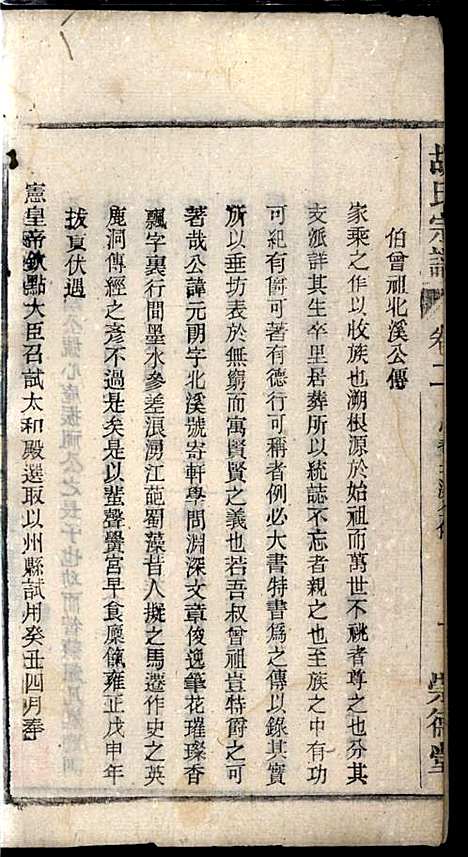 胡氏宗譜 卷二 崇德堂
伯曾祖北溪公傳
家乘之作以收族也溯根源於始祖而萬世不祧者尊之也分其
支派詳其生卒里居葬所以統誌不忘者親之也至於族之中有功
可紀有爵可著有德行可稱者例必大書特書爲之傳以錄其實
所以垂坊表於無窮而寓賢賢之義也若吾叔曾祖豈特爵之可
著哉公諱元朗字北溪號寄軒學問淵深文章俊逸筆花璀璨香
飄字裏行間墨水參差浪湧江葩蜀藻昔人擬之馬遷作史之英
鹿洞傳經之彥不過是矣是以蜚聲黌宮早食廩餼雍正戊申年
拔貢伏遇
憲皇帝欽點大臣召試太和殿選取以州縣試用癸丑四月奉